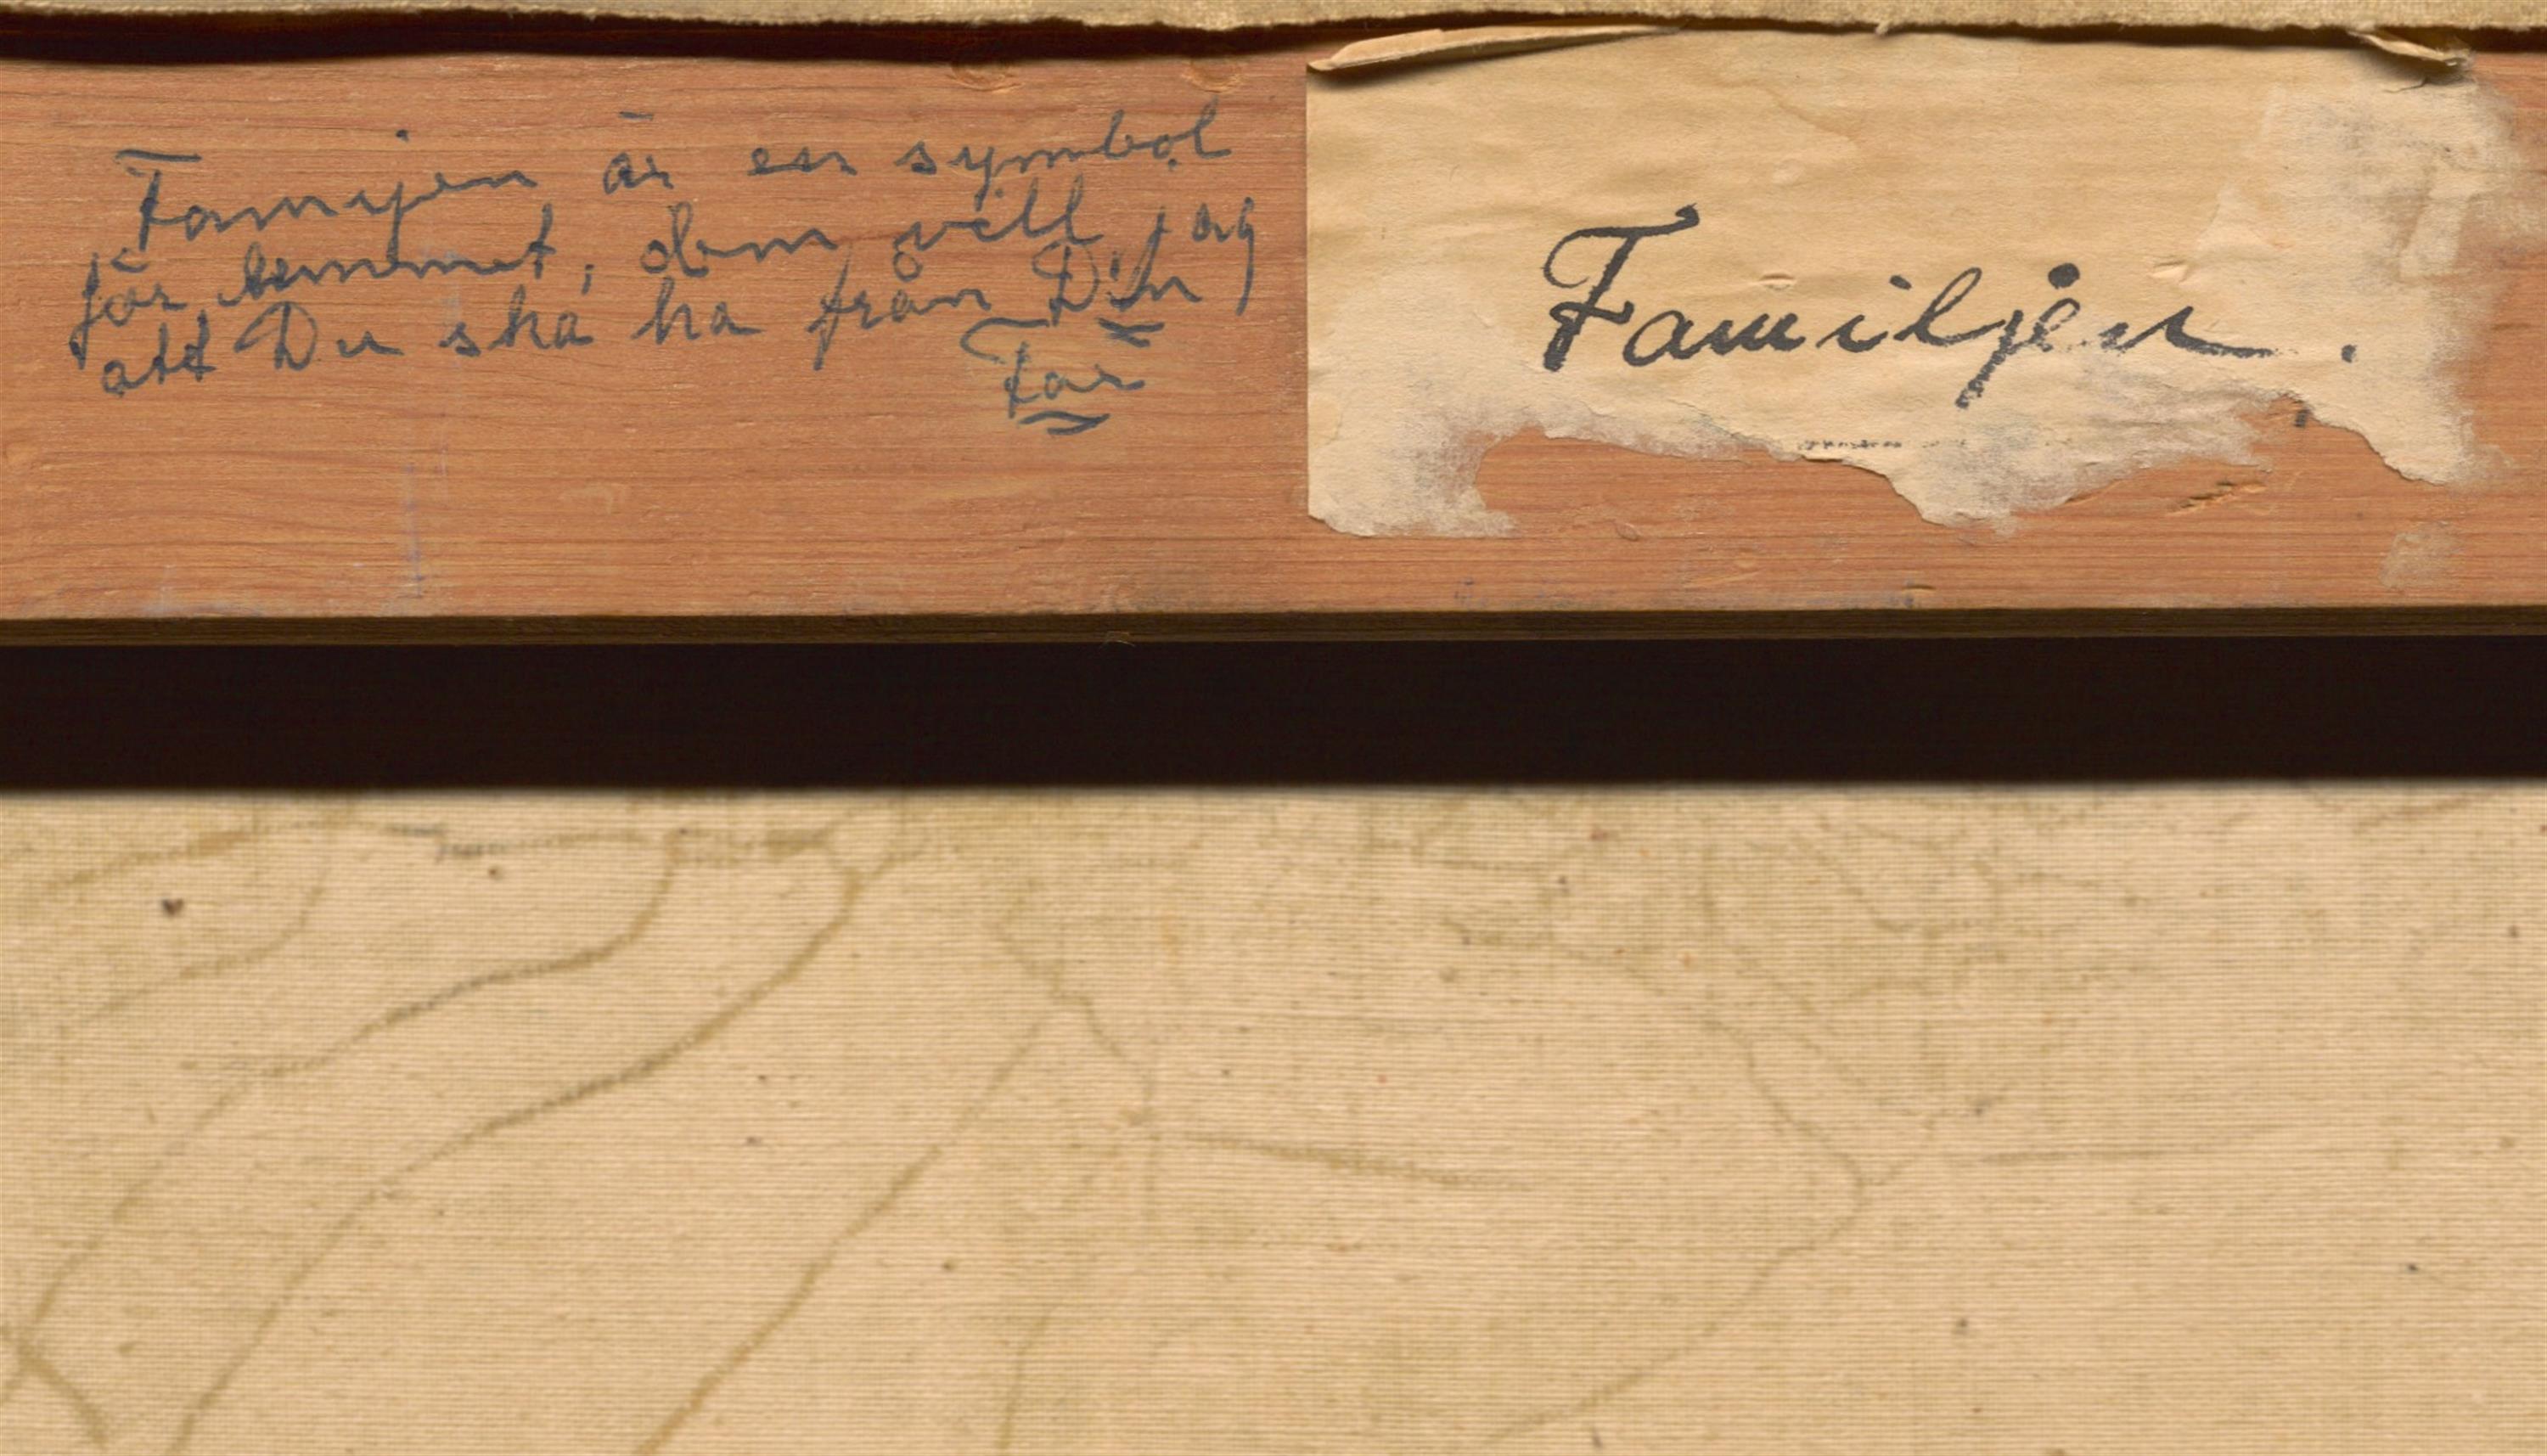 Famijen är en symbol
för hemmet, vill jag
att Du ska ha från Din
Far
Familjen.